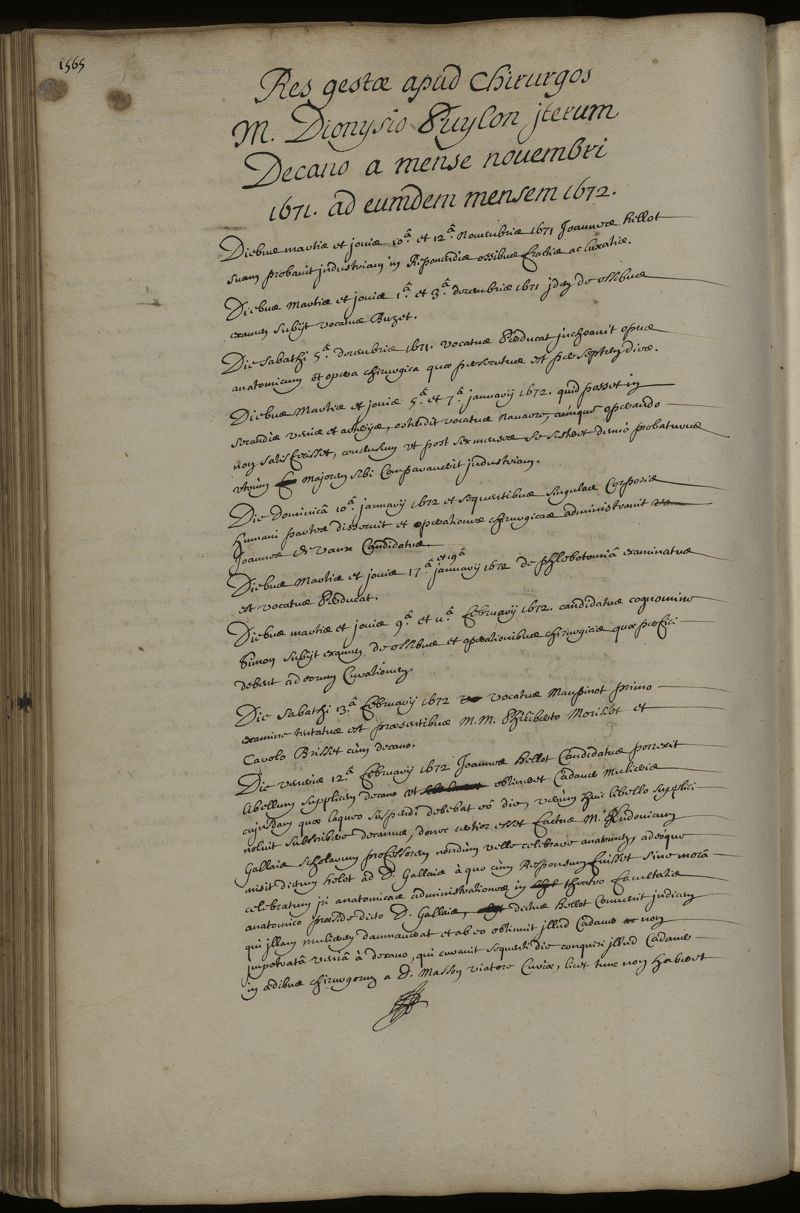 1565
Res gestæ apud Chirurgos
M. Dionysio Puylon jterum
Decano a mense nouembri
1671. ad eumdem mensem 1672.
Diebus martis et jouis 10.ª et 12.ª Nouembris 1671 Joannes Hellot
suam probauit industriam in Reponendis ossibus fractis ac luxatis.
Diebus Martis et jouis 1.ª et 3.ª decembris 1671 jdem de ossibus
examen subijt vocatus Buzet.
Die Sabathi 5.ª decembris 1671. vocatus Preducat jnchoauit opus
anatomicum et opera chirurgica quæ persecutus est per septem dies.
Diebus Martis et jouis 5.ª et 7.ª januarij 1672. quid posset in
secandis venis et arterijs, ostendit vocatus Nauarre, cumque operando
non satisfecisset, conclusum vt post sex menses se sisteret denuò probaturus
vtrùm majorem sibi comparauerit industriam.
Die Dominicâ 10.ª januarij 1672 et sequentibus singulas Corporis
humani partes disseruit et operationes chirurgicas administrauit
Joannes Devaux Candidatus
Diebus Martis et jouis 17.ª et 19.ª januarij 1672 de phlebotomiâ examinatus
est vocatus Preducat.
Diebus martis et jouis 9.ª et 11.ª februarij 1672. candidatus cognomine
Simon subijt examen de ossibus et operationibus chirurgicis quæ profici
debent ad eorum Curationem.
Die Sabathi 13.ª februarij 1672 vocatus Maupinot primo
examine tentatus est præsentibus M.M. Philiberto Morisset et
Carolo Brisset cùm decano.
Die veneris 12.ª februarij 1672 Joannes Hellot Candidatus porrexit
libellum supplicem decano vt obtineret Cadauer mulieris
cujusdam quæ laqueo suspendi debebat eâ die, verùm huic libello supplici
noluit subscribere decanus, donec certior esset factus M. Ludouicum
Gallais scholarum professorem nondùm velle celebrare anatomen, adeoque
misit dictum helot ad D. Gallais à quo cùm Responsum fuisset sine morâ
celebratum jri anatomicas administrationes in theatro facultatis
anatomico præside dicto D. Gallais, dictus Hellot Conuenit judicem
qui illam mulierem damnauerat et ab eo obtinuit illud Cadauer non
jmpetratâ veniâ à decano, qui curauit sequenti die conquiri illud Cadauer
in ædibus chirurgorum a D. Masson viatore Curiæ, licet tunc non haberet